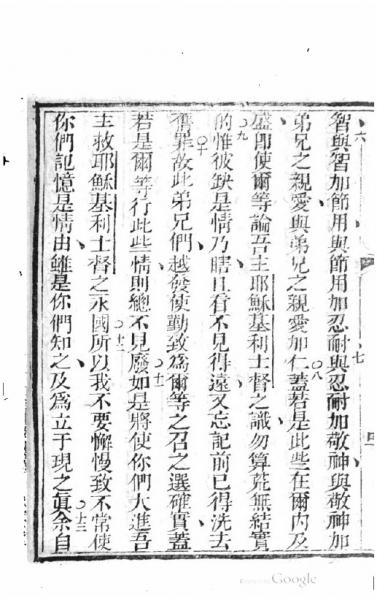 智與智加節用與節用加忍耐與忍耐加敬神與敬神加
弟兄之親愛與弟兄之親愛加仁蓋若是此些在爾內及
盛即使爾等論吾主耶穌基利士督之識勿算荒無結實
的惟彼缺是情乃瞎且看不見得遠又忘記前已得洗去
舊罪故此弟兄們越發使勤致為爾等之召之選確實蓋
若是爾等行此些情則總不見廢如是將使你們大進吾
主救耶穌基利士督之永國所以我不要懈慢致不常使
你們記憶是情由雖是你們知之及為立于現之眞余自
六
七
八
九
十
十一
十二
十三
Google